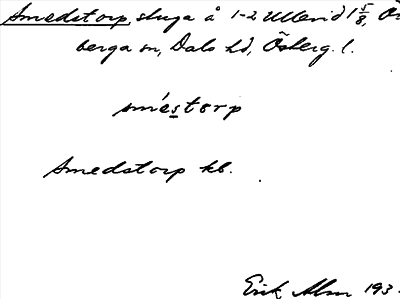 Smedstorp, stuga å 1-2 Ullevid 1 5/8, Ö
berga sn, Dals hd, Österg. l.
smés̲torp
Smedstorp kb.
Erik Alm 193